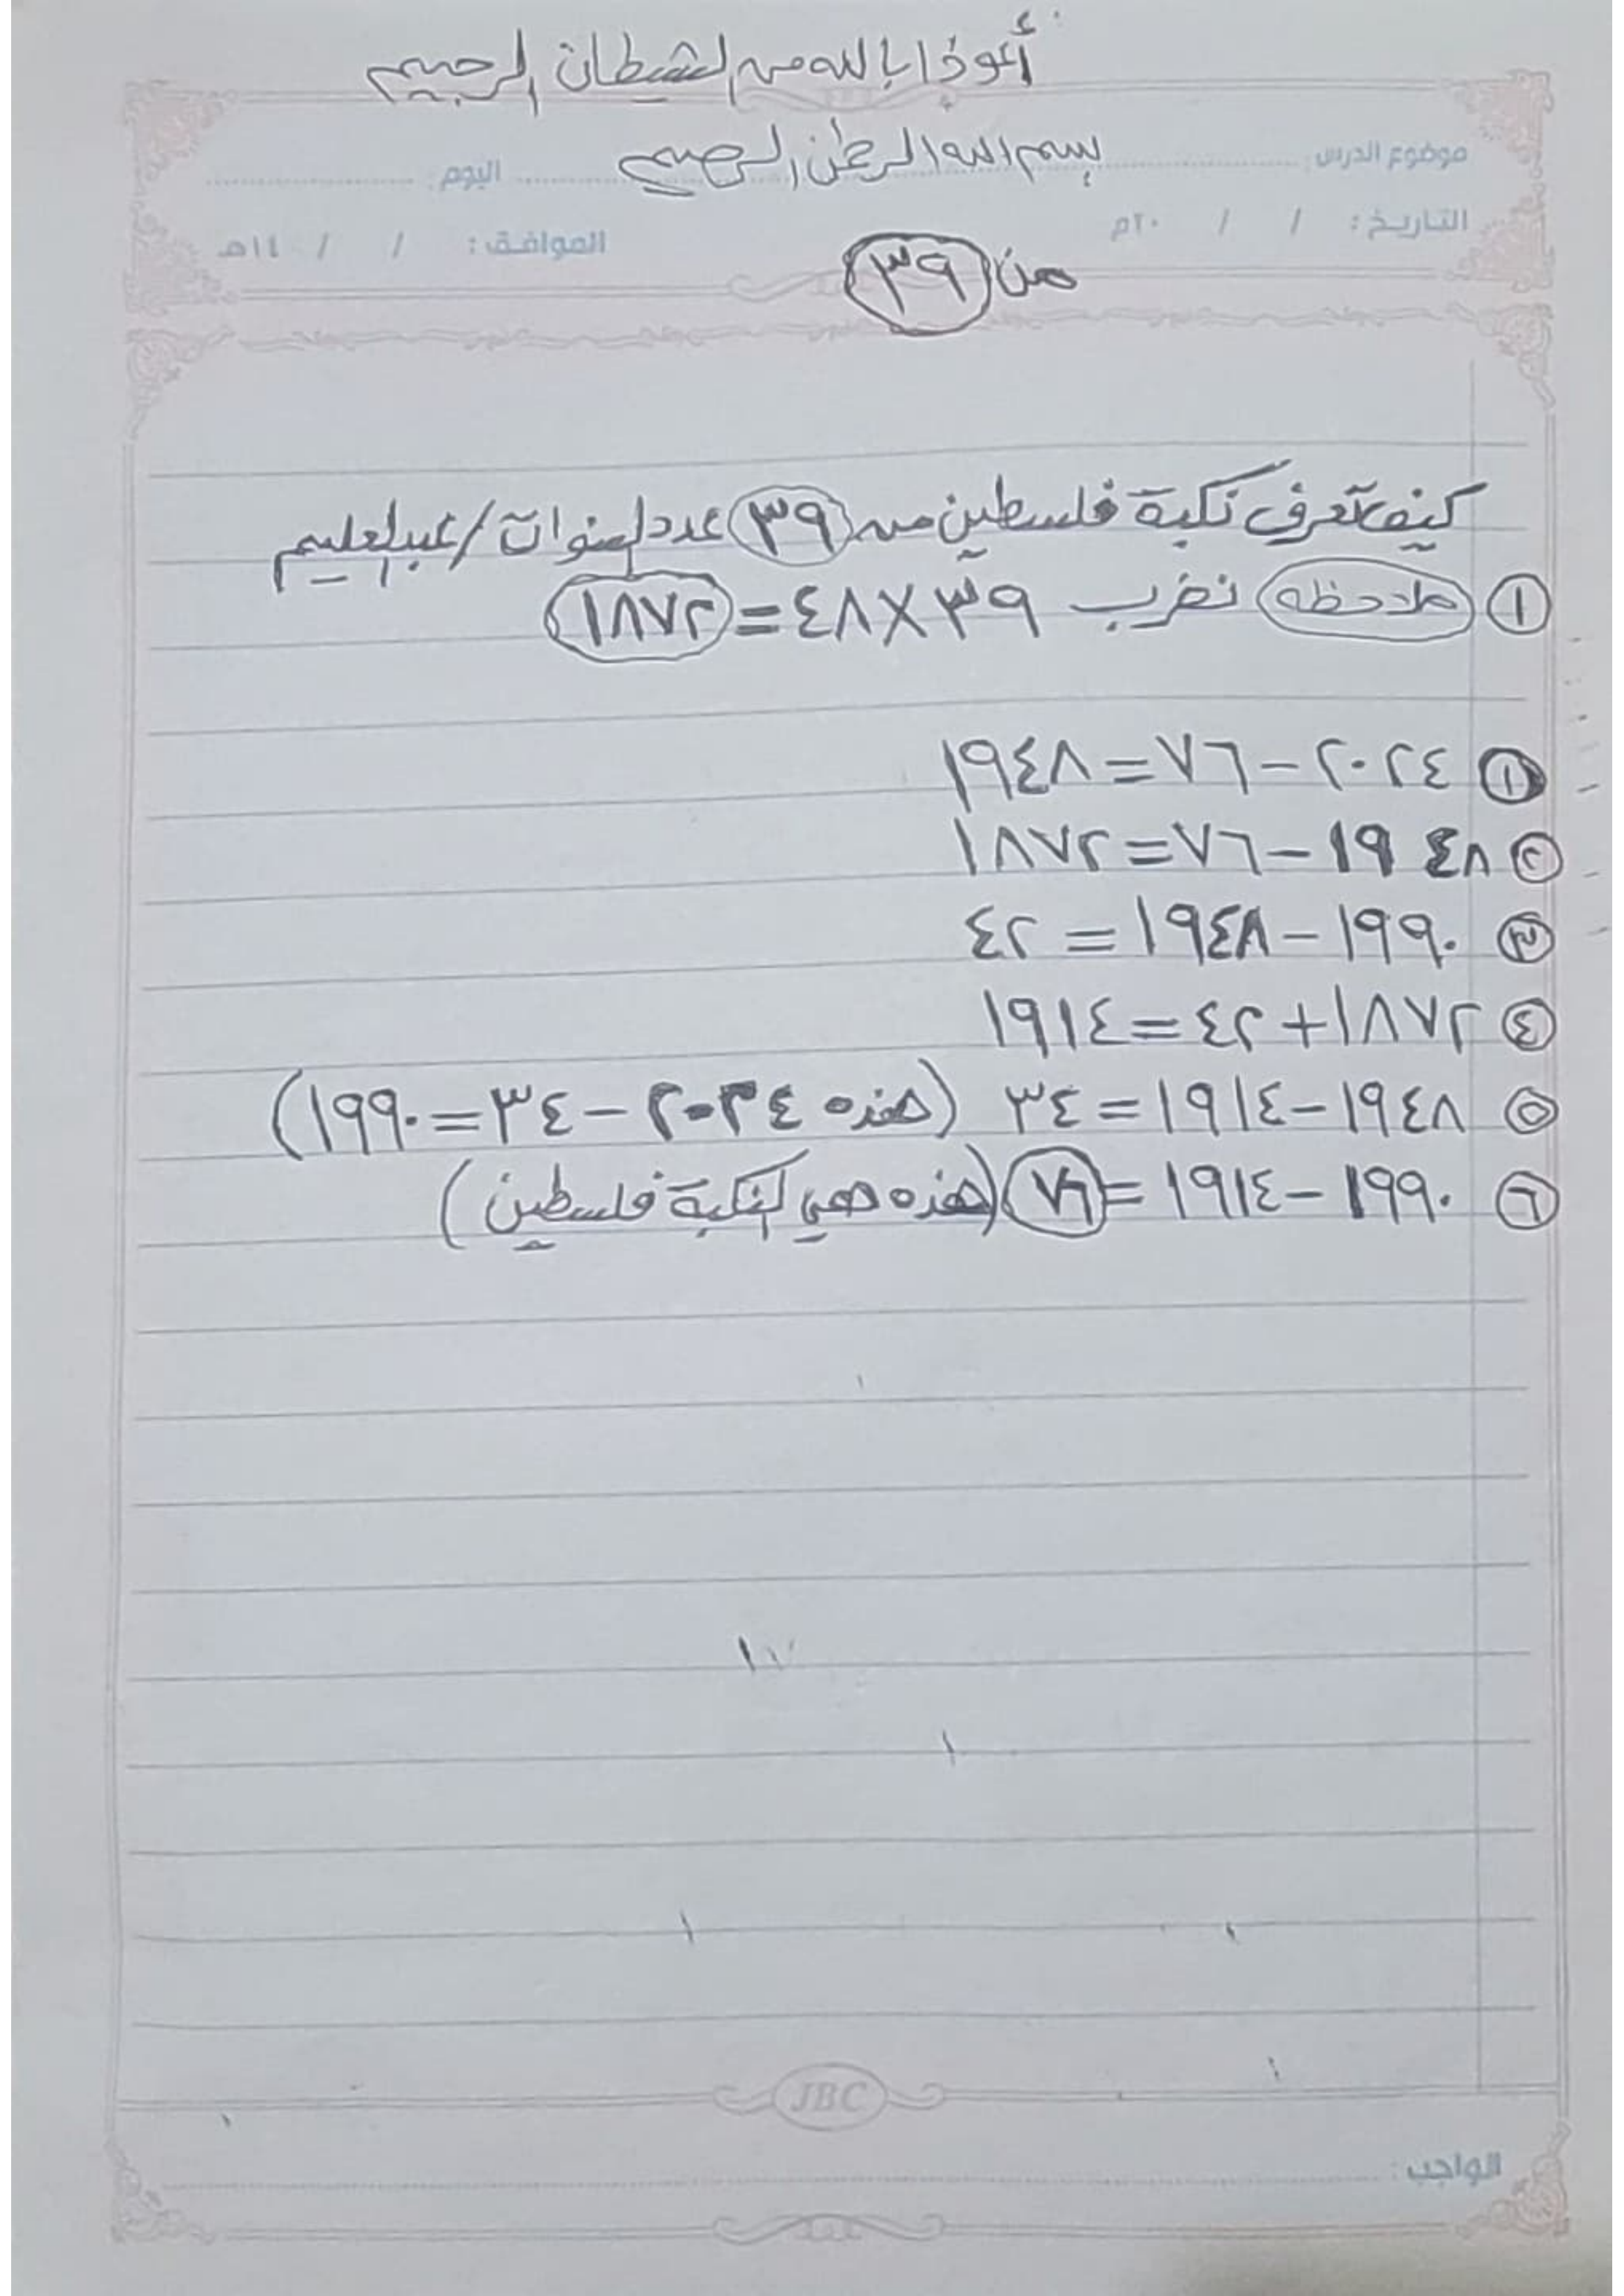 أعوذ بالله من الشيطان الرجيم
بسم الله الرحمن الرحيم
موضوع الدرس: اليوم:
التاريخ: / / ٢٠م الموافق: / / ١٤هـ
من ٣٩
كيف تعرف نكبة فلسطين من ٣٩ عدد السنوات / عبدالعليم
١ ملاحظه نضرب ٣٩×٤٨=١٨٧٢
١ ٢٠٢٤-٧٦=١٩٤٨
٢ ١٩٤٨-٧٦=١٨٧٢
٣ ١٩٩٠-١٩٤٨=٤٢
٤ ١٨٧٢+٤٢=١٩١٤
٥ ١٩٤٨-١٩١٤=٣٤ (هذه ٢٠٢٤-٣٤=١٩٩٠)
٦ ١٩٩٠-١٩١٤=٧٦ (هذه هي النكبة فلسطين)
JBC
الواجب: